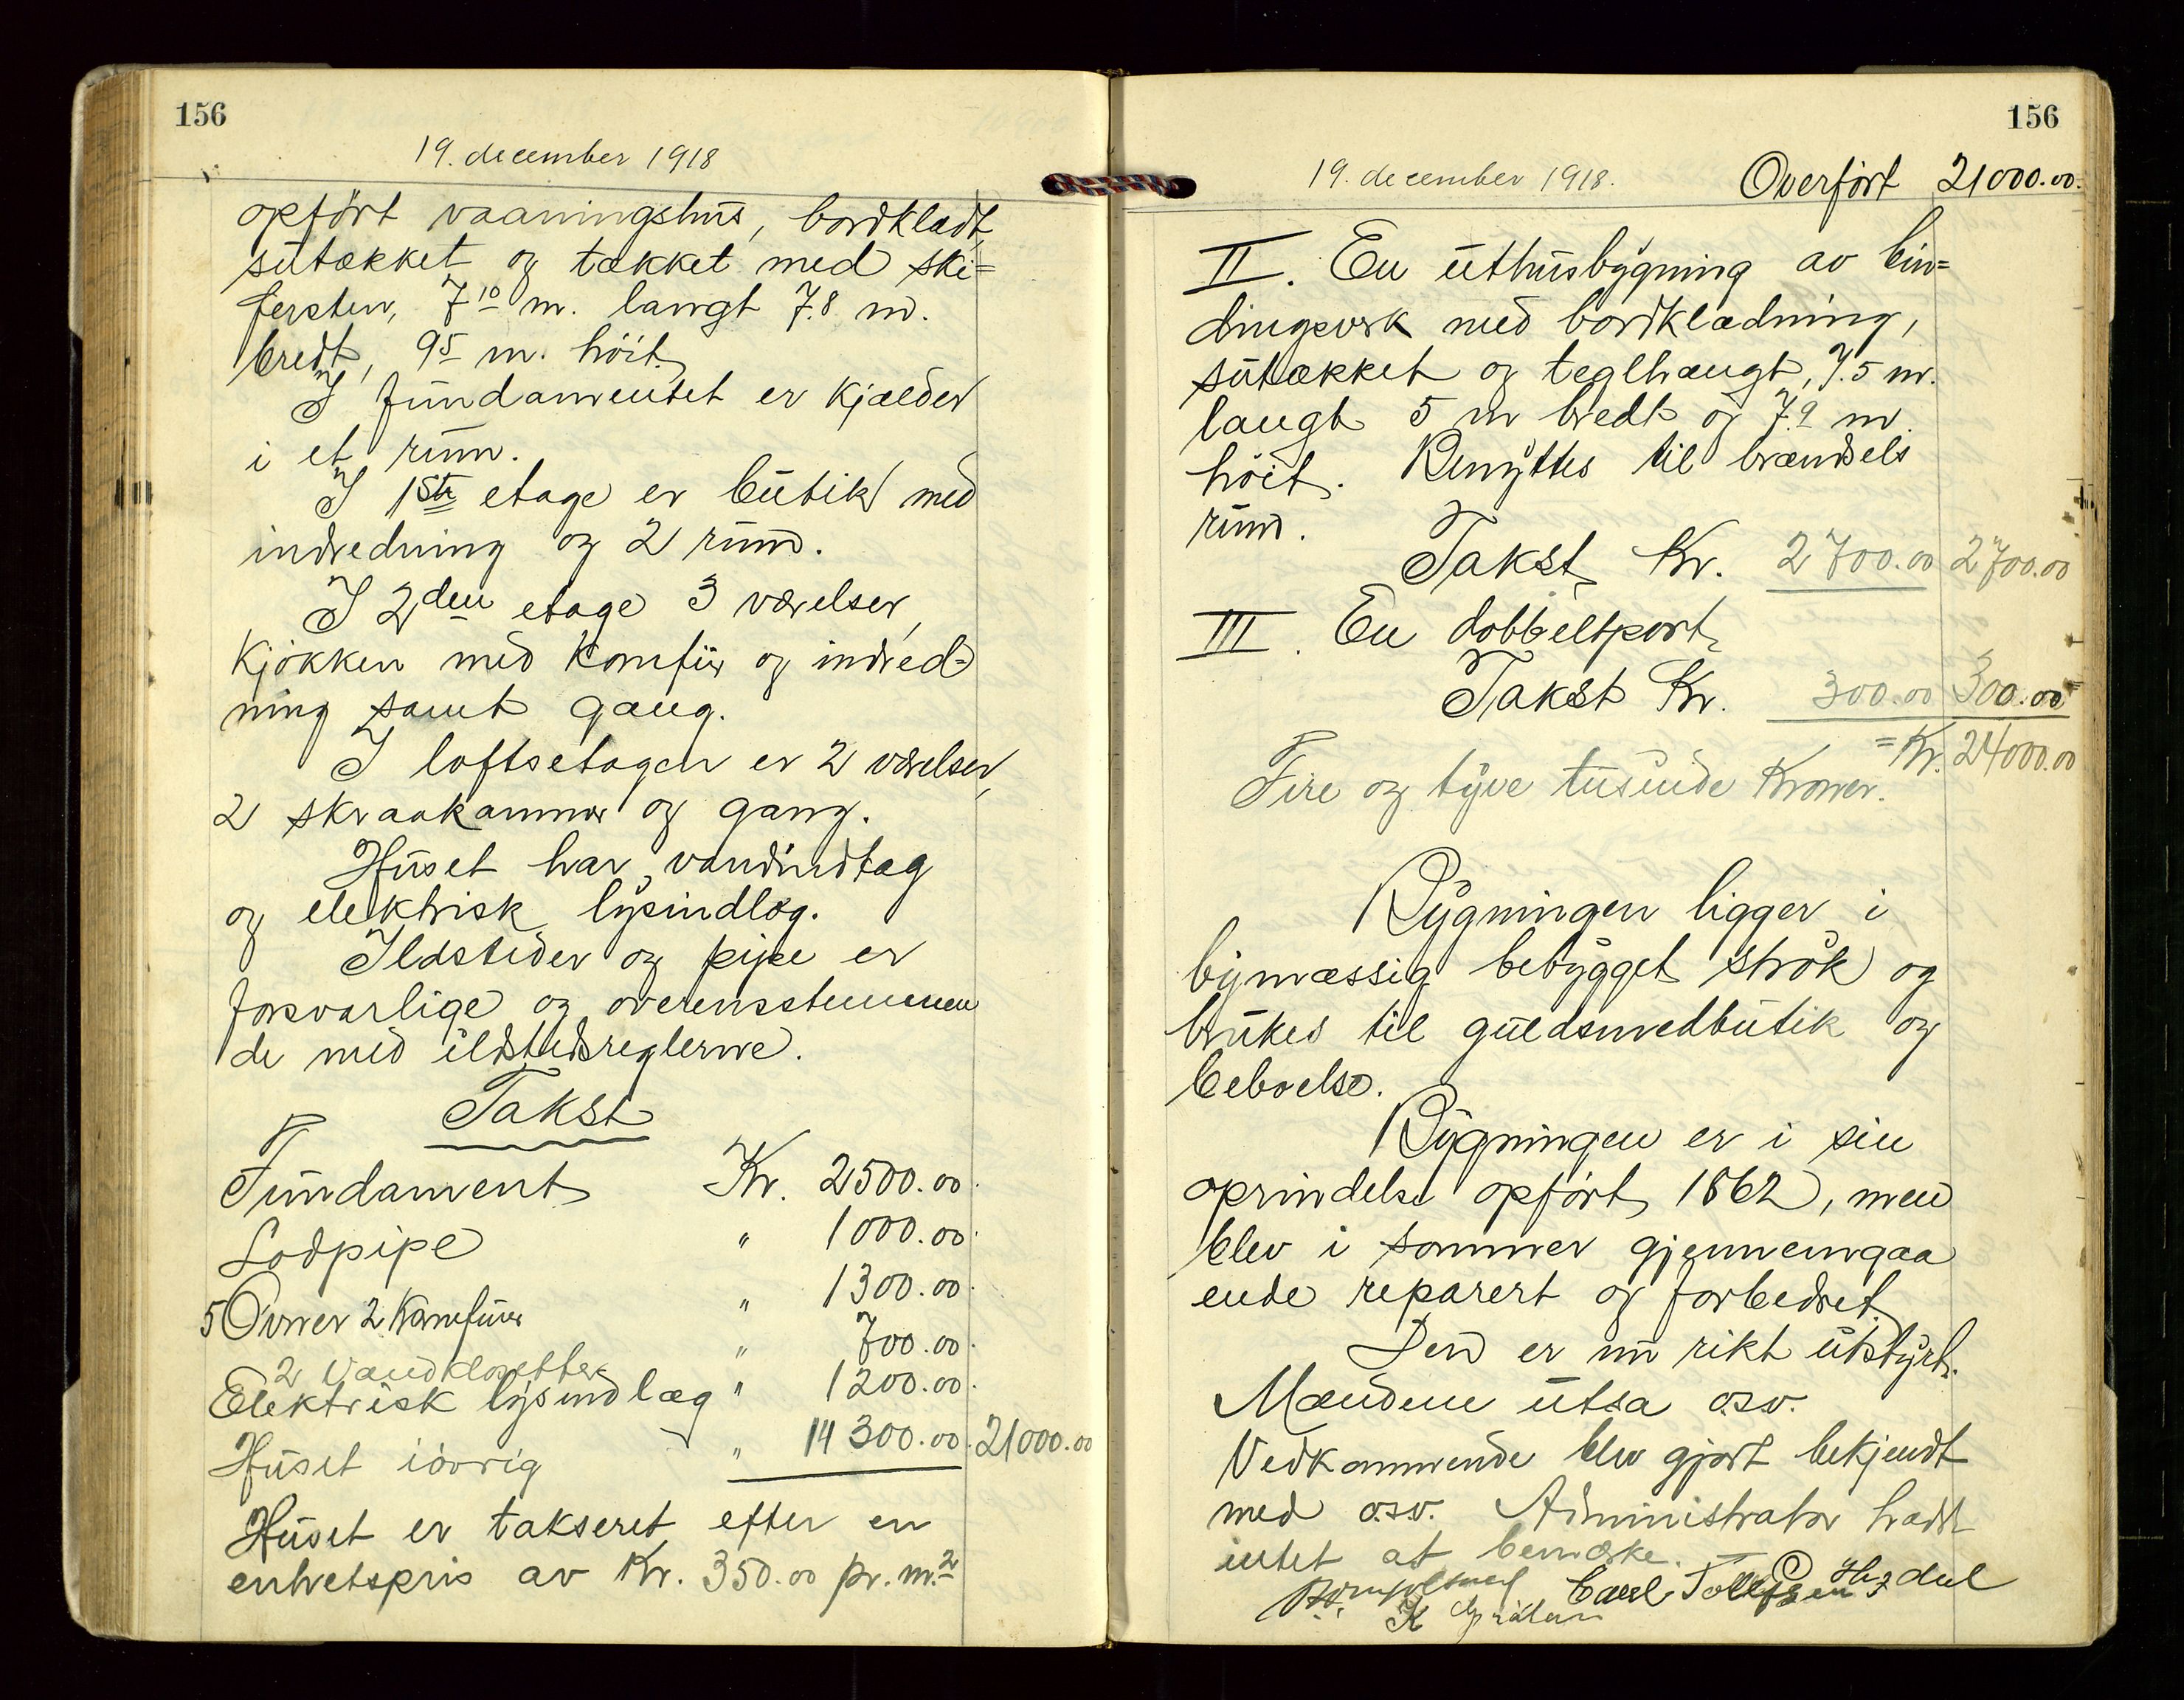 156
19. december 1918
opført vaaningshus, bordklædt,
sutækket og tækket med ski=
fersten, 7 10 m. langt 7.8 m.
bredt, 9 5 m. høit.
I fundamentet er kjælder
i et rum.
I 1ste etage er butik med
indredning og 2 rum.
I 2den etage 3 værelser,
kjøkken med komfur og indred-
ning samt gang.
I loftsetagen er 2 værelser,
2 skraakammer og gang.
Huset har vandindtag
og elektrisk lysindlæg.
Ildsteder og pipe er
forsvarlige og overensstemmen
de med ildstedsreglerne.
Takst
Fundament Kr. 2500.00
Lodpipe " 1000.00
5 Ovner 2 Komfurer " 1300.00
2 Vandklosetter " 700.00
Elektrisk lysindlæg " 1200.00
Huset iøvrig " 14300.00 21000.00
Huset er takseret efter en
enhetspris av Kr. 350.00 pr. m.2
156
19. december 1918. Overført 21000.00.
II. En uthusbygning av bin=
dingsverk med bordklædning,
sutækket og teglhængt, 7.5 m.
langt 5 m bredt og 7.9 m.
høit. Benyttes til brændsels
rum.
Takst Kr. 2700.00 2700.00
III. En dobbeltport,
Takst Kr. 300.00 300.00
= Kr. 24000.00
Fire og tyve tusinde Kroner.
Bygningen ligger i
bymæssig bebygget strøk og
brukes til guldsmedbutik og
beboelse.
Bygningen er i sin
oprindelse opført 1862, men
blev i sommer gjennemgaa
ende reparert og forbedret.
Den er nu rikt utstyrt.
Mændene utsa o.s.v.
Vedkommende blev gjort bekjendt
med o.s.v. Administrator hadde
intet at bemærke.
Carl Tollefsen
K